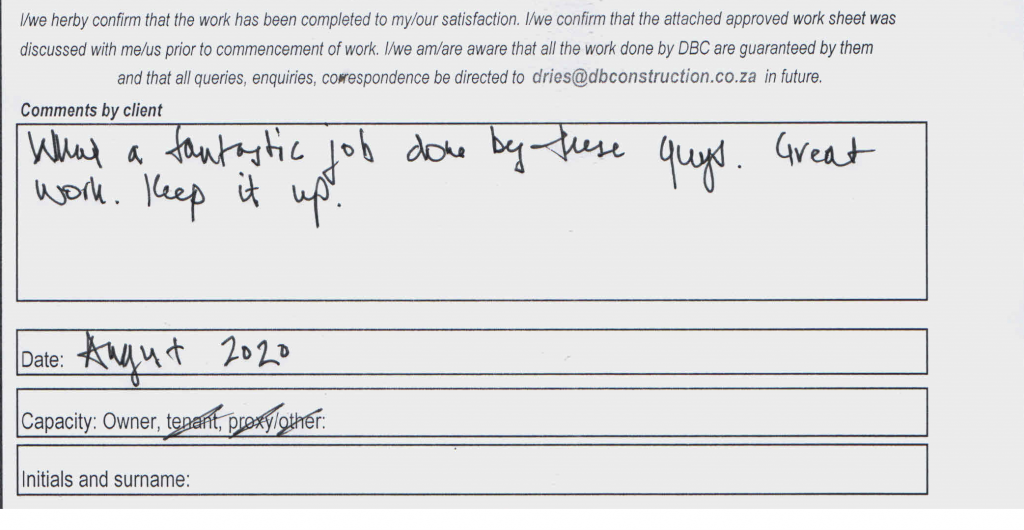 I/we herby confirm that the work has been completed to my/our satisfaction. I/we confirm that the attached approved work sheet was
discussed with me/us prior to commencement of work. I/we am/are aware that all the work done by DBC are guaranteed by them
and that all queries, enquiries, correspondence be directed to dries@dbconstruction.co.za in future.
Comments by client
What a fantastic job done by these guys. Great
work. Keep it up.
Date: August 2020
Capacity: Owner, tenant, proxy/other:
Initials and surname: